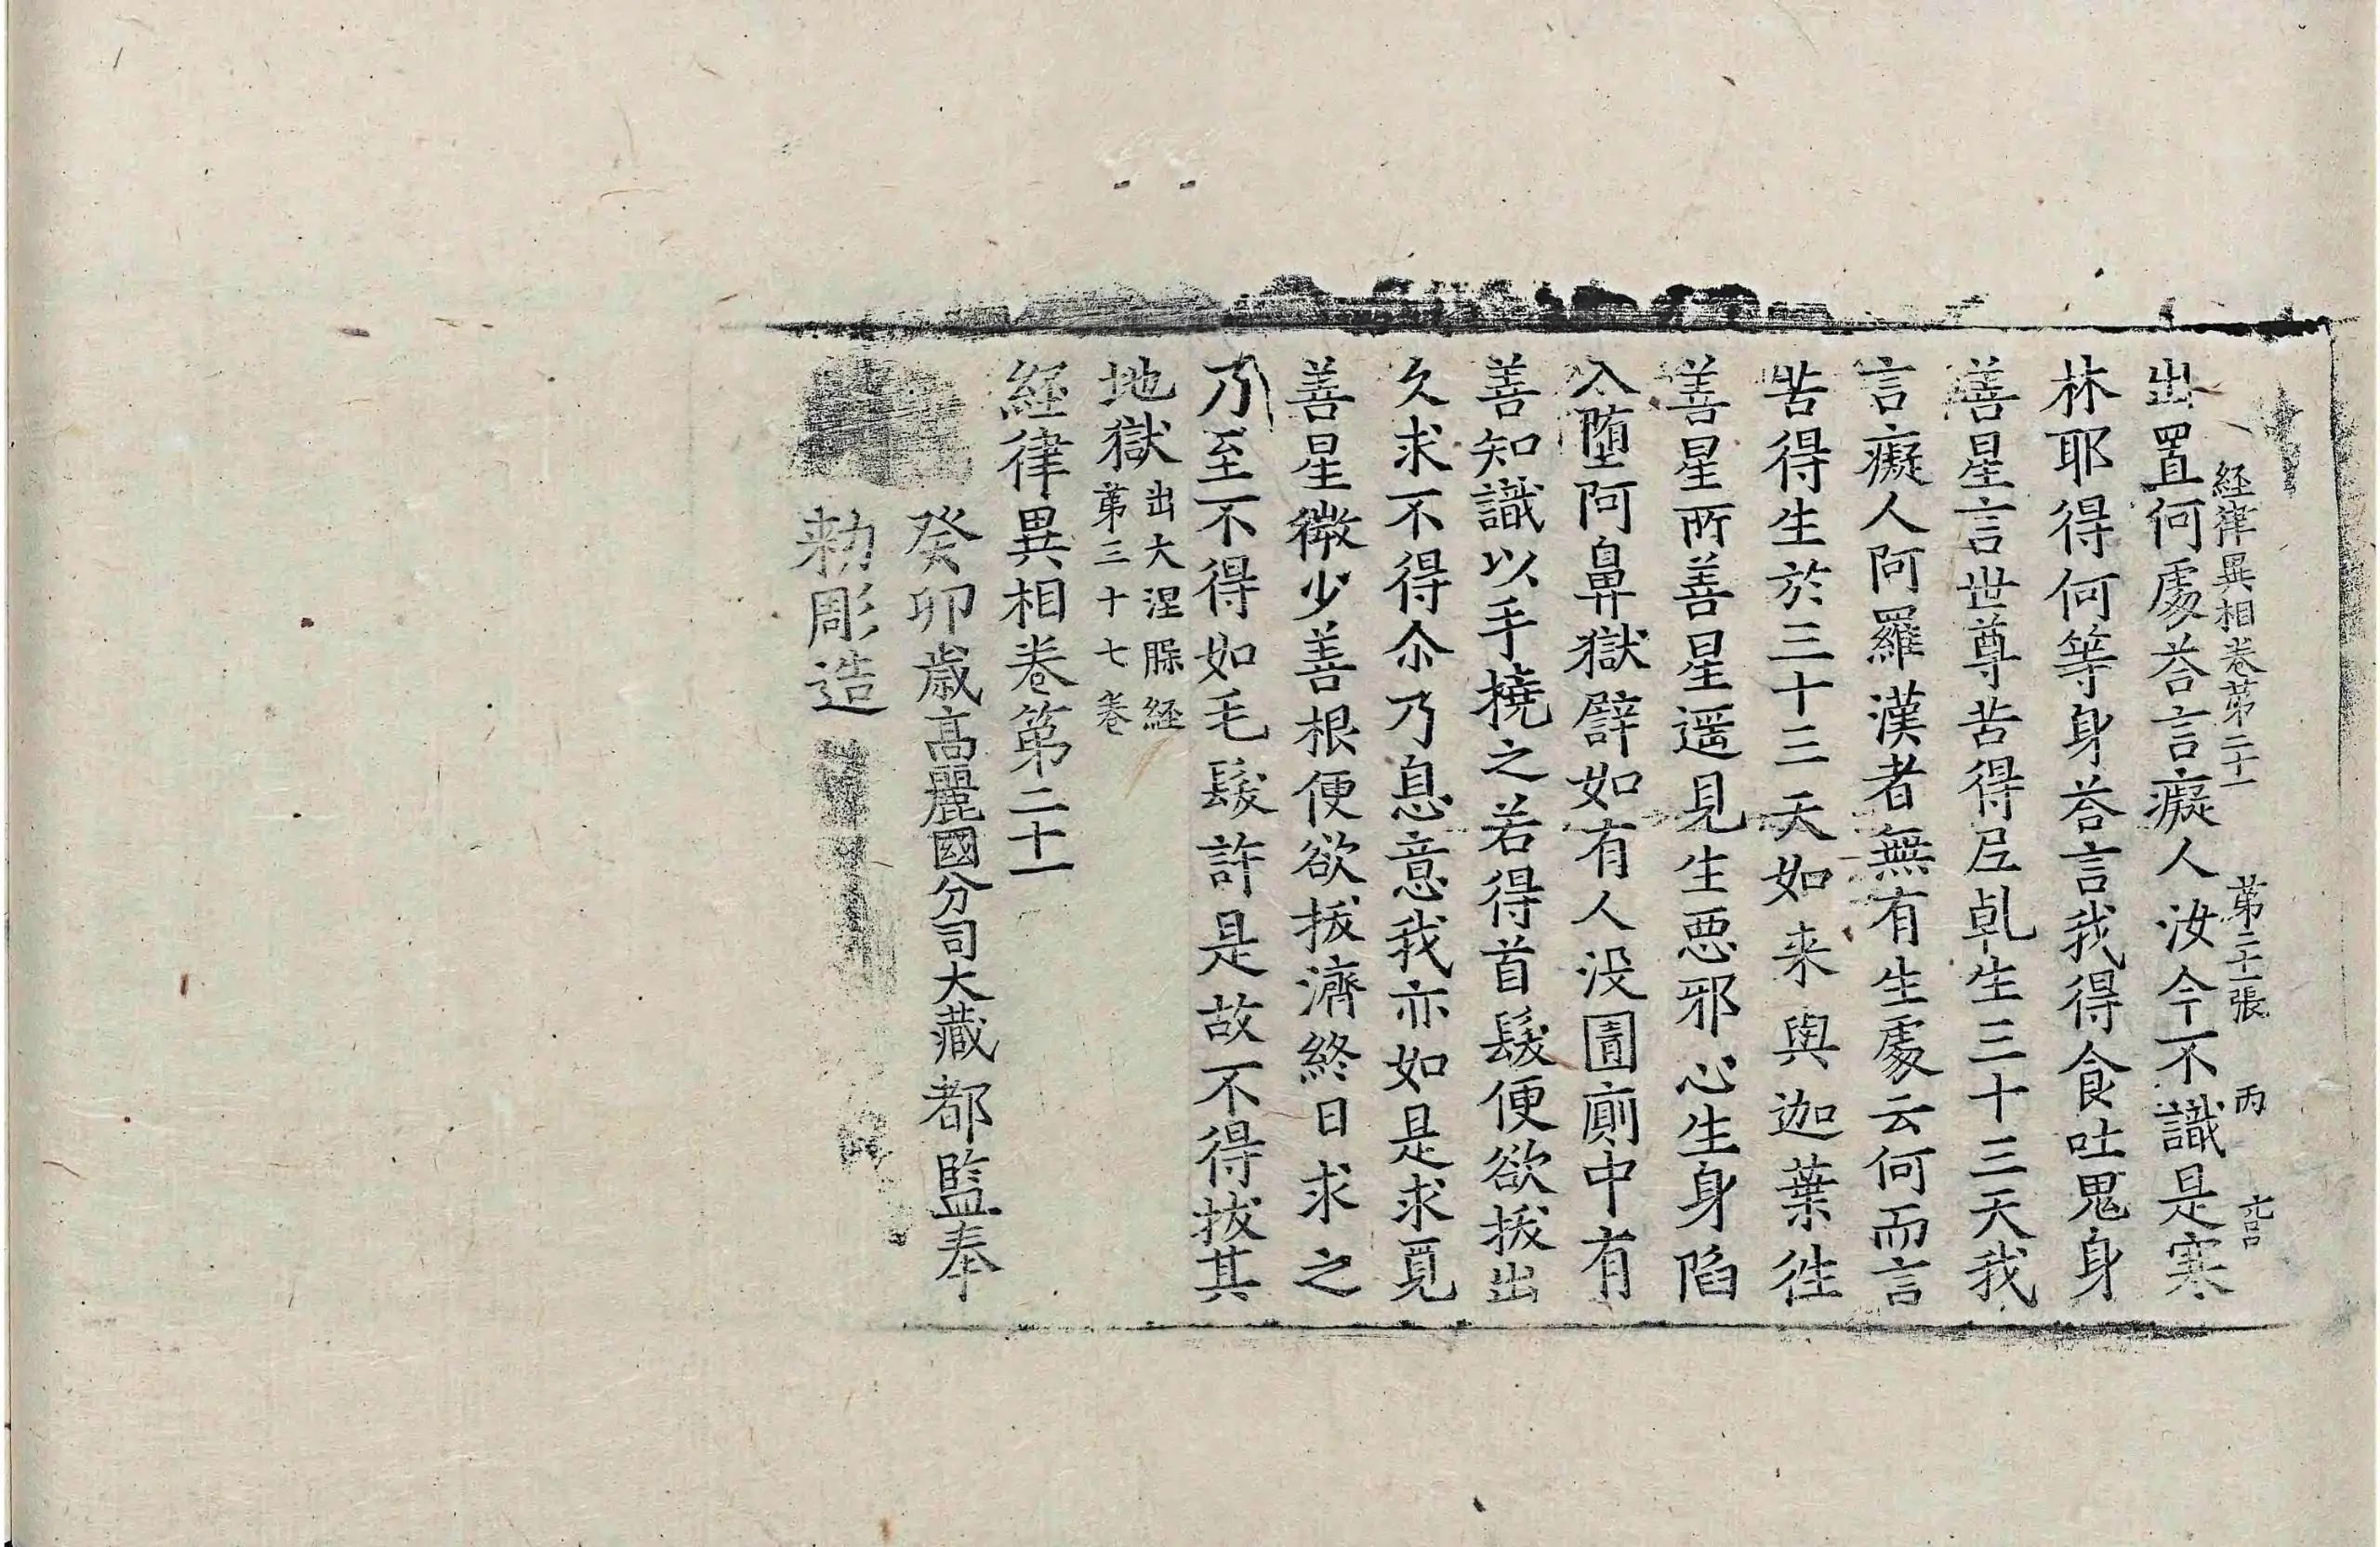 経律異相卷第二十一 第二十一張 丙
出置何處荅言癡人汝今不識是寒
林耶得何等身荅言我得食吐鬼身
善星言世尊苦得尼乹生三十三天我
言癡人阿羅漢者無有生處云何而言
苦得生於三十三天如来與迦葉徃
善星所善星遥見生惡邪心生身陷
入墮阿鼻獄譬如有人没圊廁中有
善知識以手撓之若得首髮便欲拔出
久求不得尒乃息意我亦如是求覓
善星微少善根便欲拔濟終日求之
乃至不得如毛髮許是故不得拔其
地獄出大涅槃経
第三十七卷
経律異相卷第二十一
癸卯歳高麗國分司大藏都監奉
勅彫造